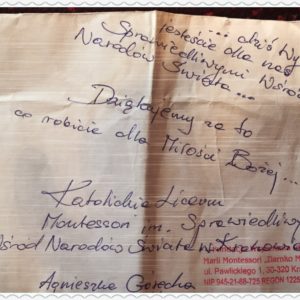 ... dziś Wy
jesteście dla nas
Sprawiedliwymi Wśród
Narodów Świata...
Dziękujemy za to
co robicie dla Miłości Bożej...
Katolickie Liceum
Montessori im. Sprawiedliwy
śród Narodów Świata w Krakowie
Agnieszka
Marii Montessori
ul. Pawlickiego 1, 30-320 Kr
NIP 945-21-88-725 REGON